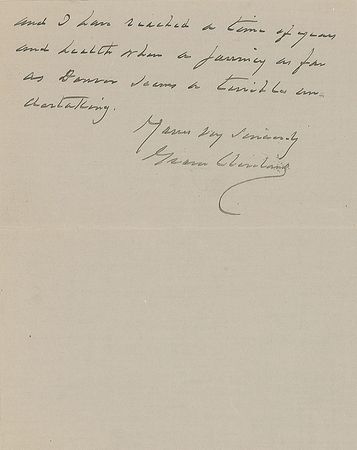 and I have reached a time of years
and health when a journey as far
as Denver seems a terrible un-
dertaking.
Yours very sincerely
Grover Cleveland